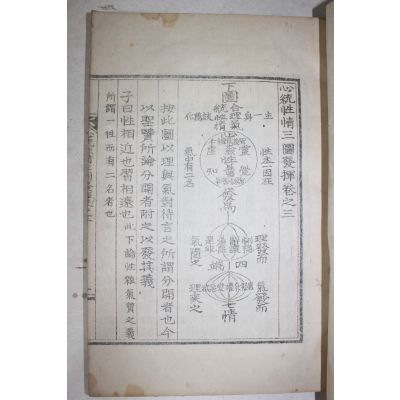 心統性情三圖發揮卷之三
下圖
合理氣
統性情
主一身
該萬化
性本一因在
氣中有二名
虛靈
知覺
發爲
理發而
氣隨之
四端
氣發而
理乘之
七情
按此圖以理與氣對待言之所謂分開者也今
以聖賢所論分開者附之以發其義
子曰性相近也習相遠也此下論性雜氣質之義
所謂一性而有二名者也